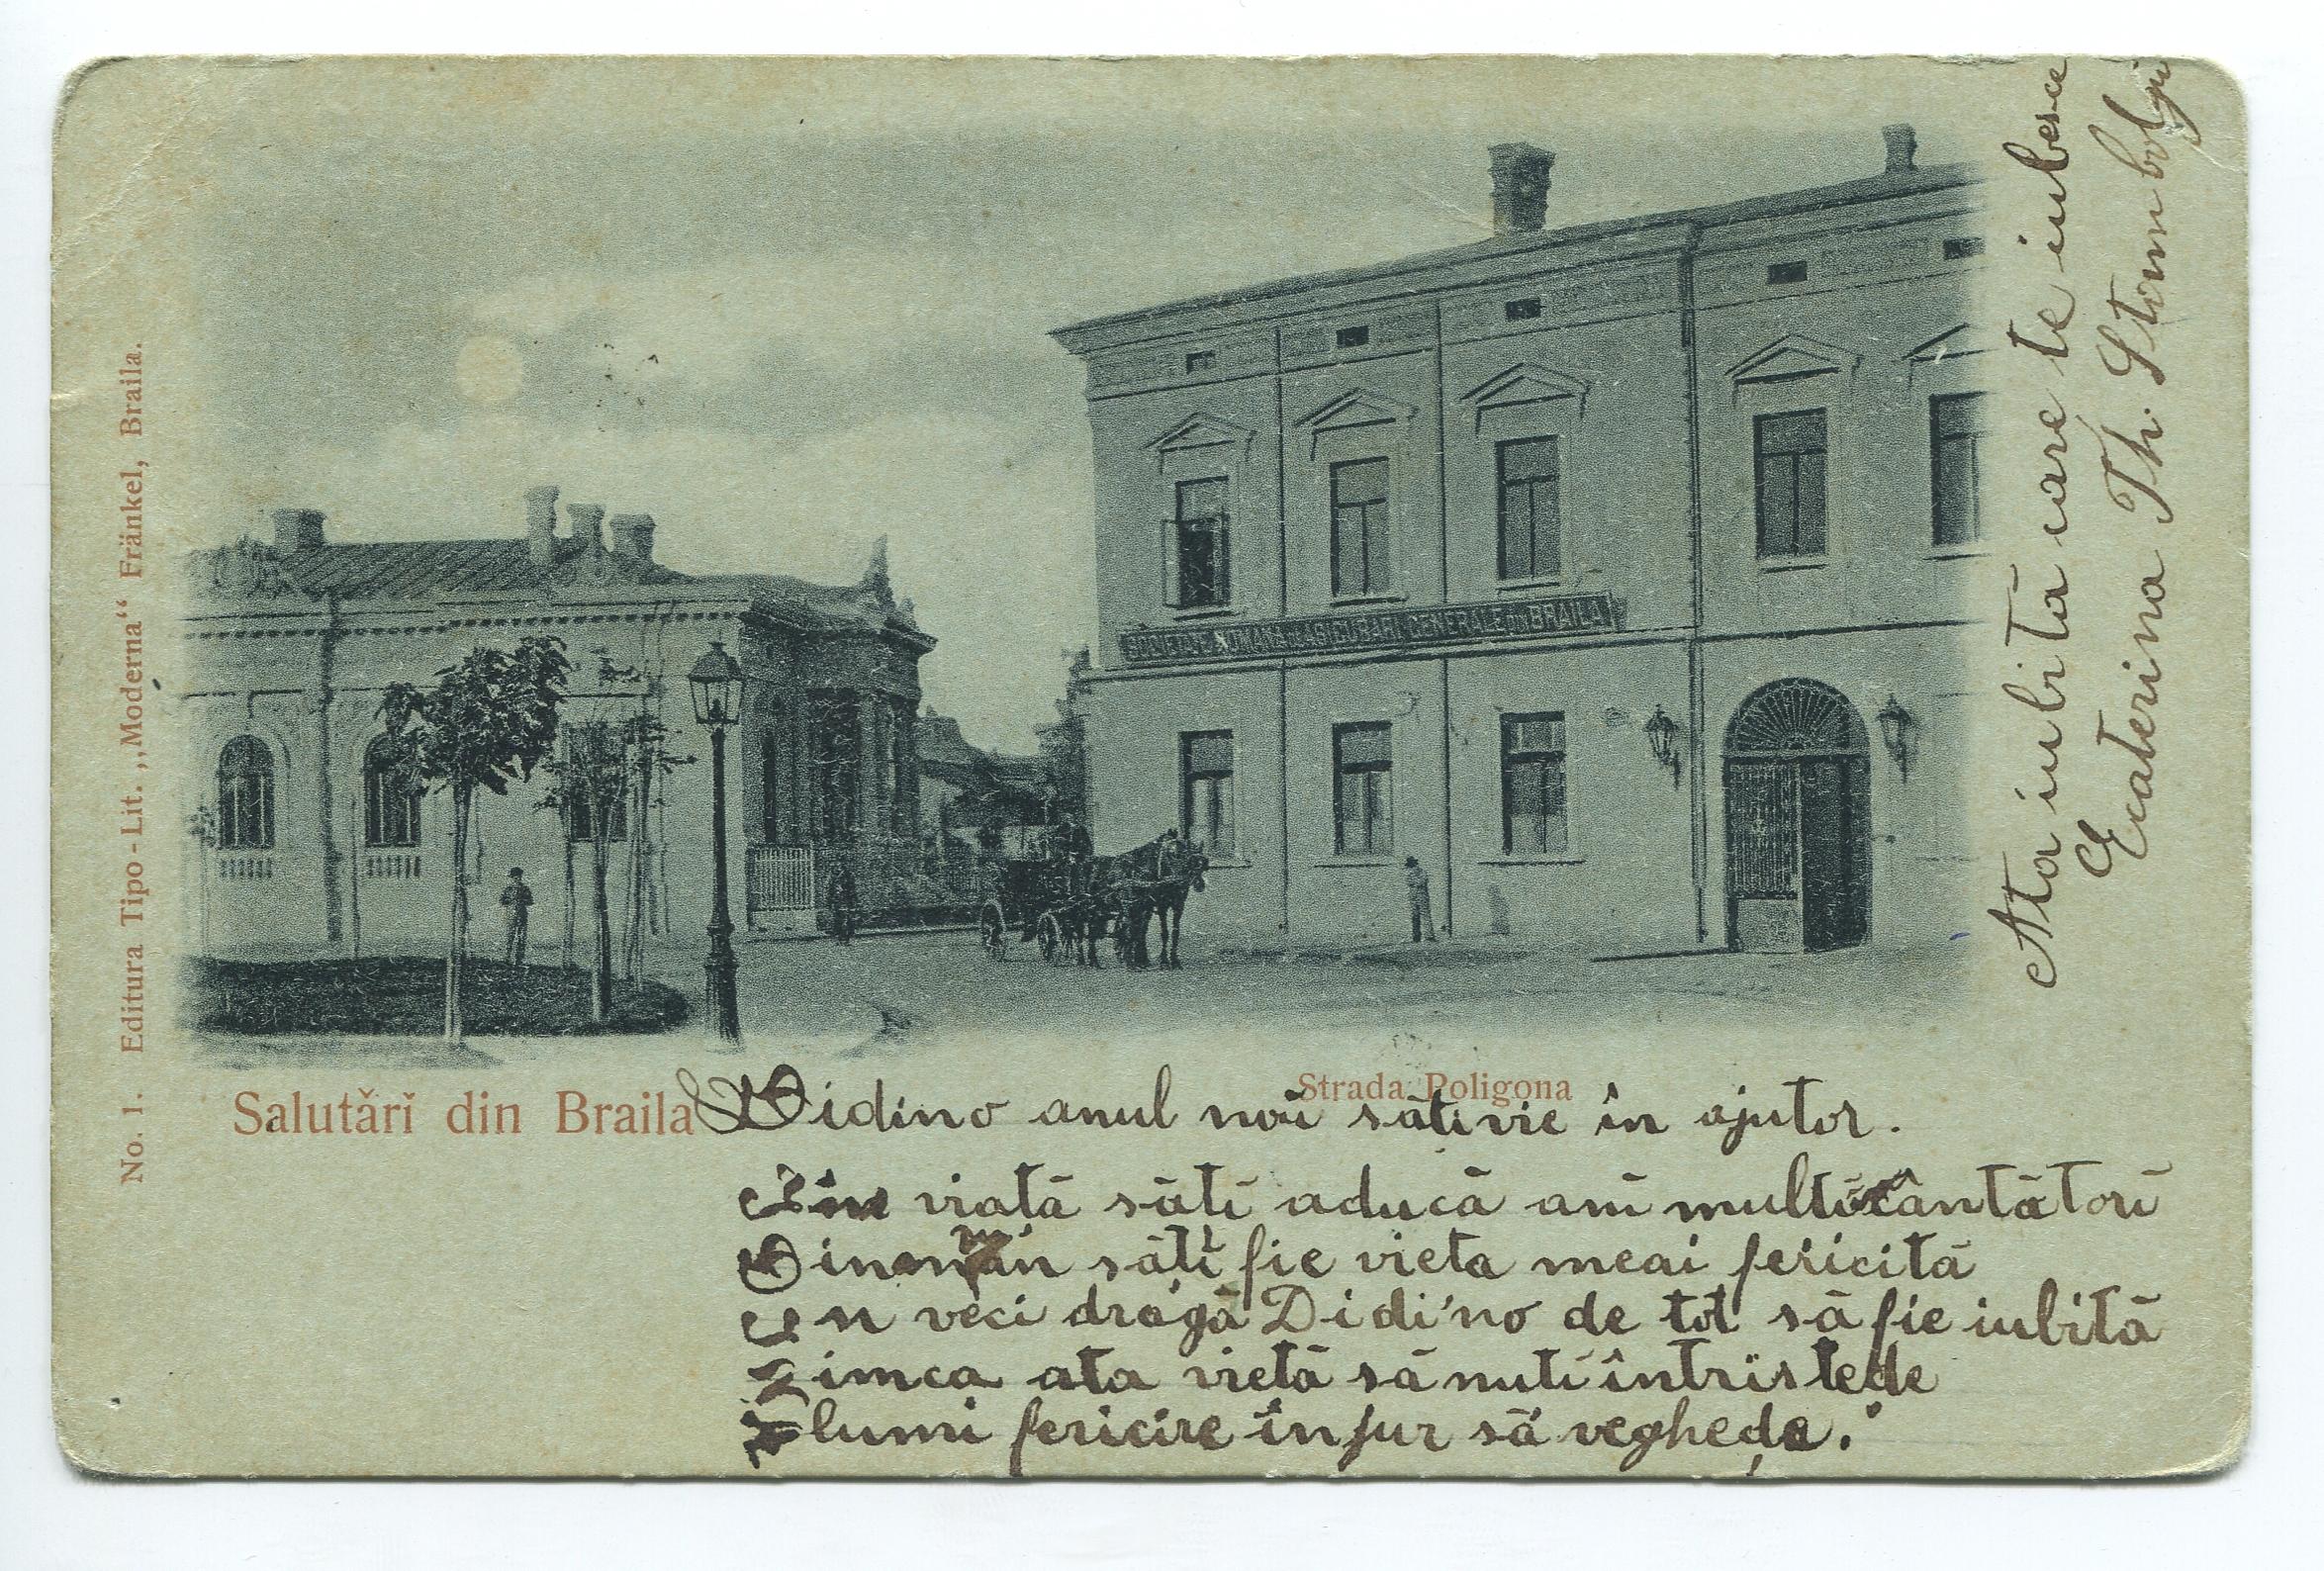 No. 1. Editura Tipo-Lit. „Moderna“ Fränkel, Braila.
SOCIETATE ROMANA DE ASIGURARI GENERALE DIN BRAILA
Salutări din Braila
Strada Poligona
Didino anul noŭ sāti vie în ajutor.
În viatā sātī aducā anī multī cântātorī
sātī fie vieta meai fericitā
În veci drogā Didino de tot sā fie iubitā
imca ata vietā sā nutī întristede
lumi fericire înjur sā veghede.
Ata iubitā care te iubesce
Ecaterina Th. Stamboliu